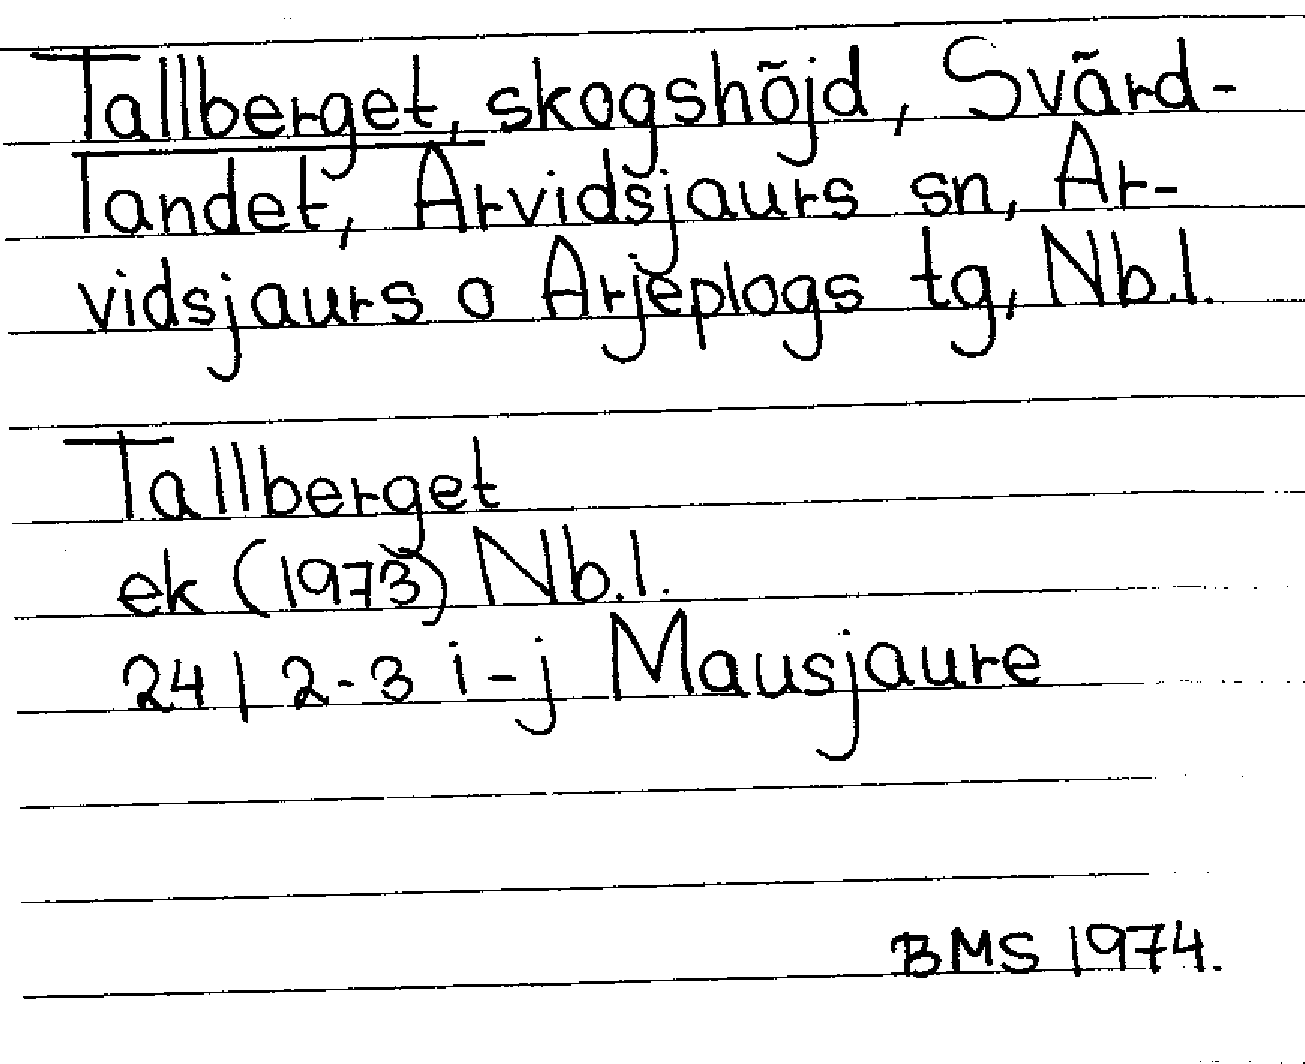 Tallberget, skogshöjd, Svärd-
landet, Arvidsjaurs sn, Ar-
vidsjaurs o Arjeplogs tg, Nb.l.
Tallberget
ek (1973) Nb.l.
24 I 2-3 i-j Mausjaure
BMS 1974.